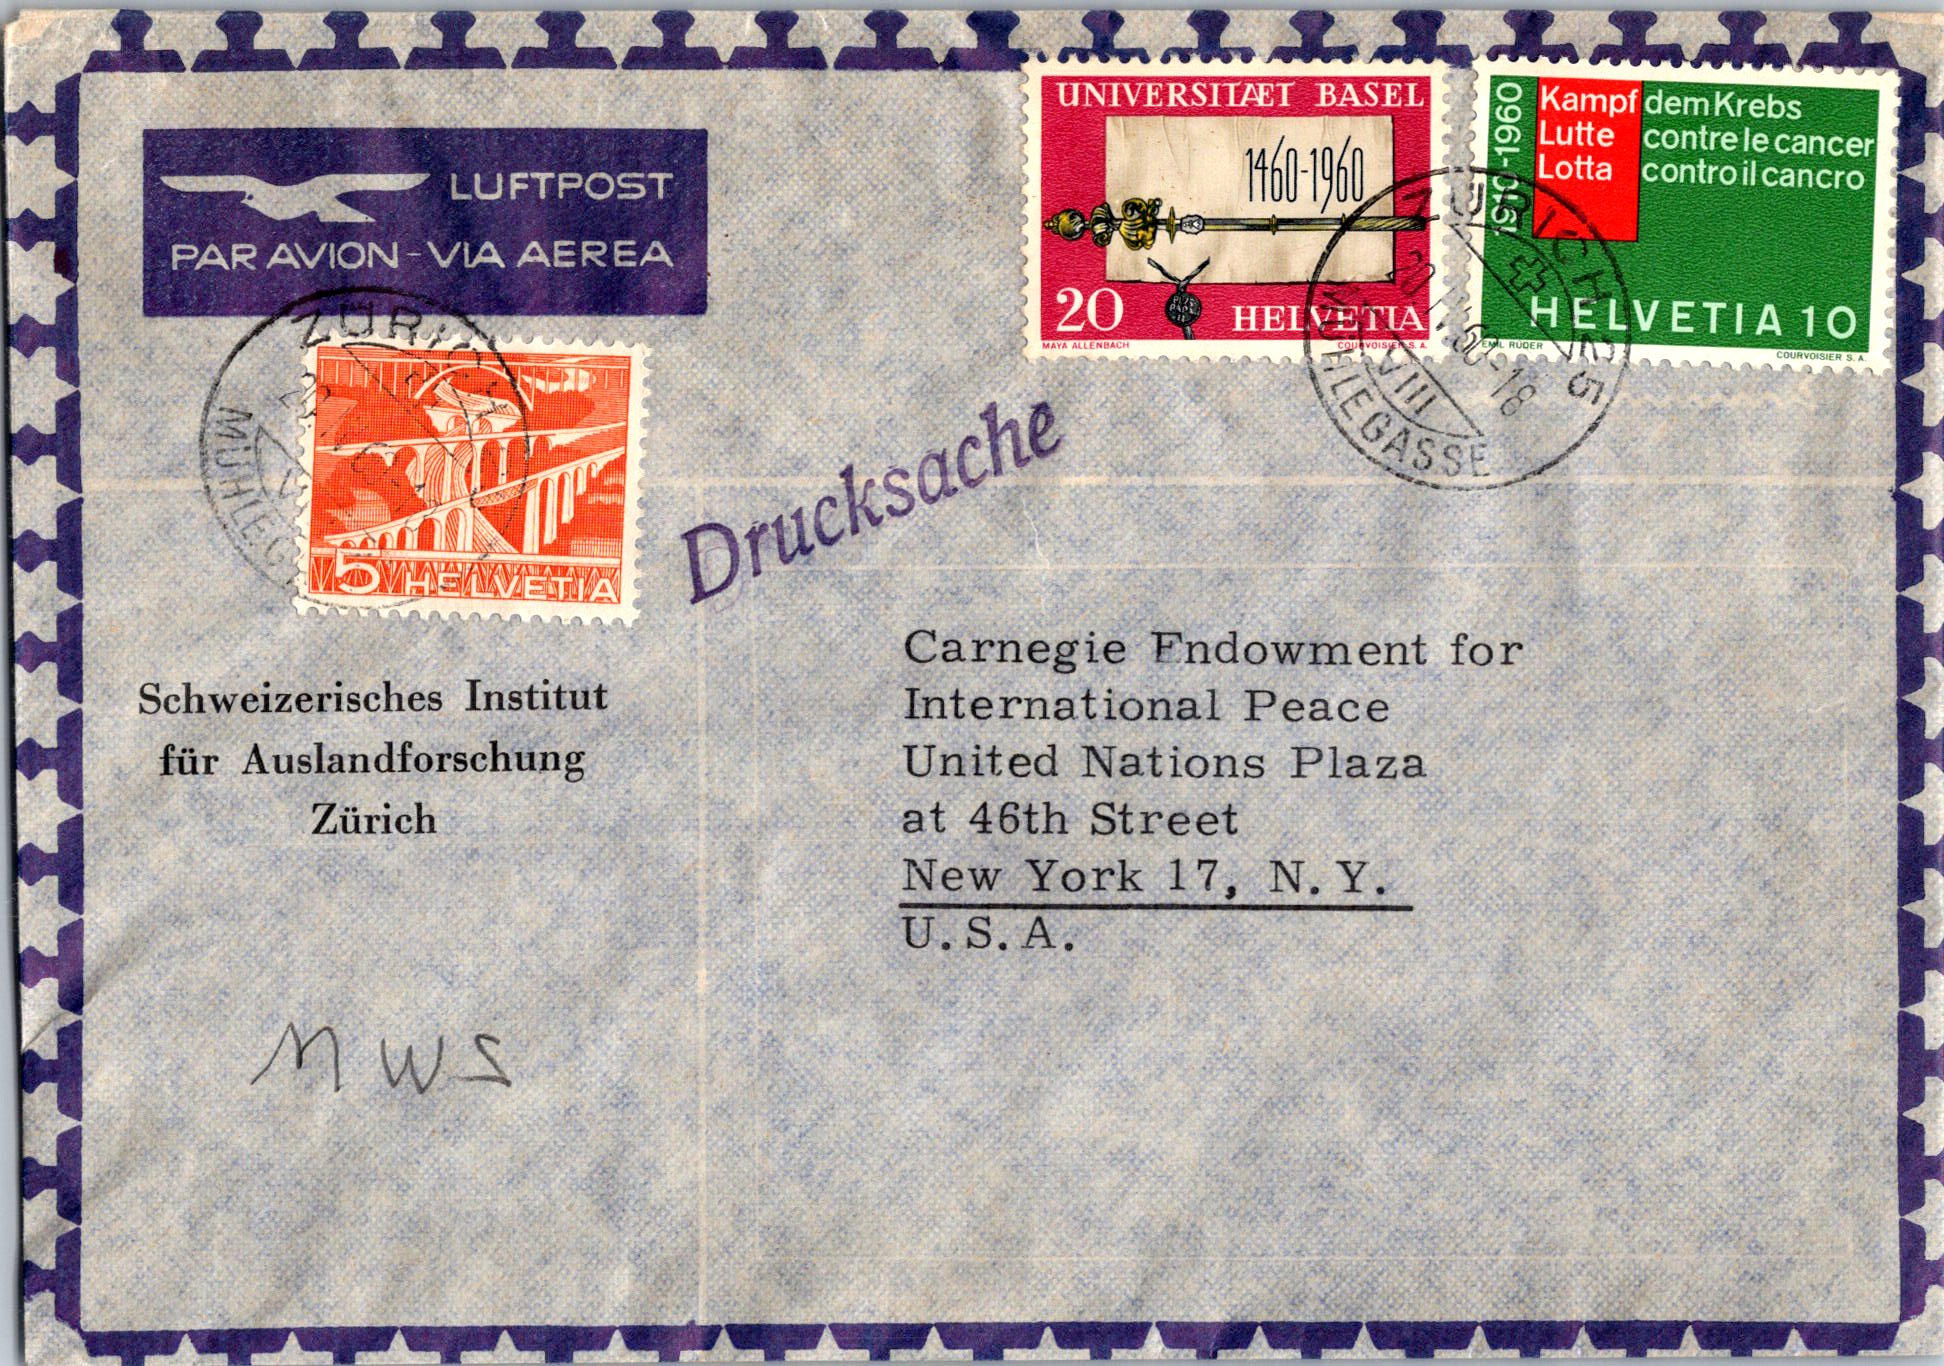 LUFTPOST
PAR AVION - VIA AEREA
UNIVERSITÆT BASEL
1460-1960
20 HELVETIA
MAYA ALLENBACH
COURVOISIER S. A.
1910-1960
Kampf dem Krebs
Lutte contre le cancer
Lotta contro il cancro
HELVETIA 10
EMIL RÜDER
COURVOISIER S. A.
ZÜRICH 25
60-18
VIII
MÜHLEGASSE
ZÜRICH
5 HELVETIA
Drucksache
Schweizerisches Institut
für Auslandforschung
Zürich
Carnegie Endowment for
International Peace
United Nations Plaza
at 46th Street
New York 17, N.Y.
U.S.A.
MWS